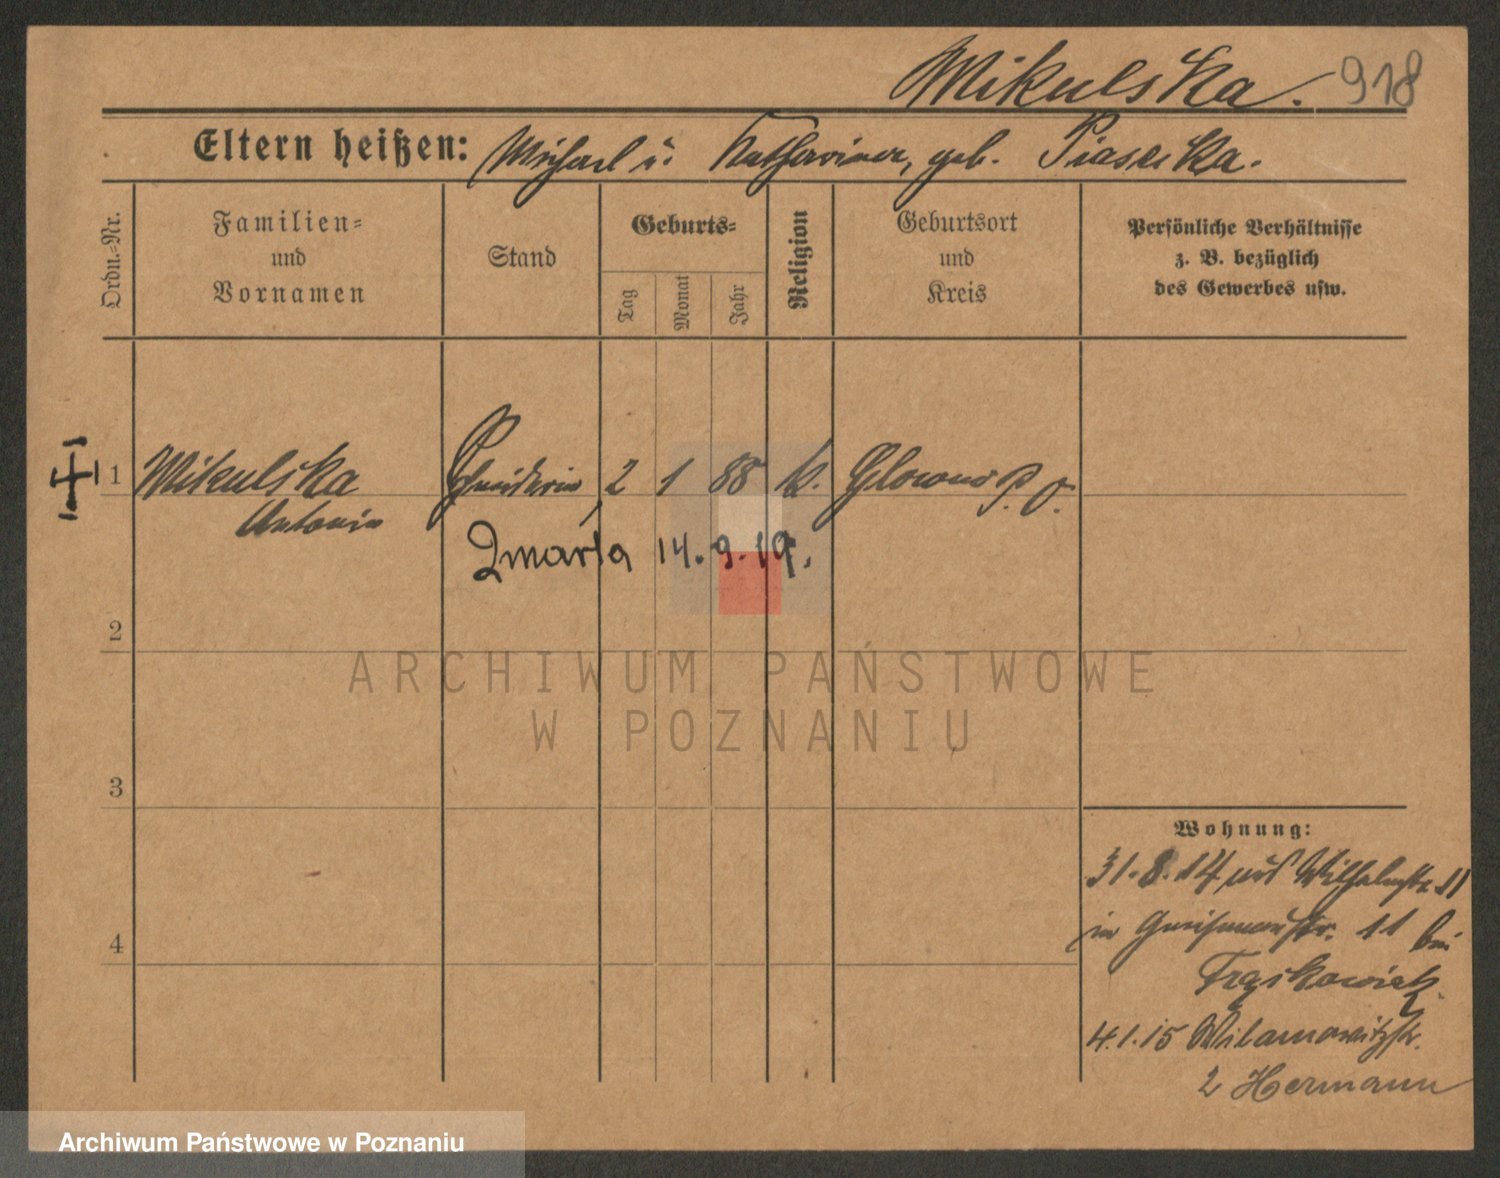 Mikulska. 918
Eltern heißen: Michael u. Katharina, geb. Piasecka.
Ordn.-Nr.
Familien-
und
Vornamen
Stand
Geburts-
Tag
Monat
Jahr
Religion
Geburtsort
und
Kreis
Persönliche Verhältnisse
z. B. bezüglich
des Gewerbes usw.
1 Mikulska Schneiderin 2 1 88 k. Glowno P. O.
Antonie
Zmarła 14.9.19.
2
ARCHIWUM PAŃSTWOWE
W POZNANIU
3
4
Wohnung:
31.8.14 Wilhelmstr. 11
in Gneisenaustr. 11 bei
4.1.15 Wilamowitzstr.
2 Hermann
Archiwum Państwowe w Poznaniu